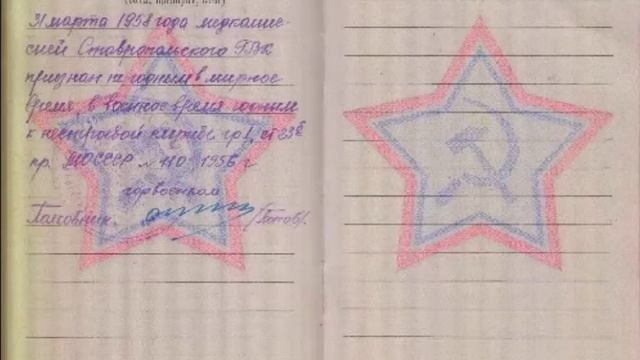 (дата, ... кем)
31 марта 1958 года медкомис-
сией Ставропольского ГВК
признан не годным в мирное
время, в военное время годным
к нестроевой службе гр I, ст 23б
пр. МО СССР № 110 - 1956 г
горвоенком
Полковник